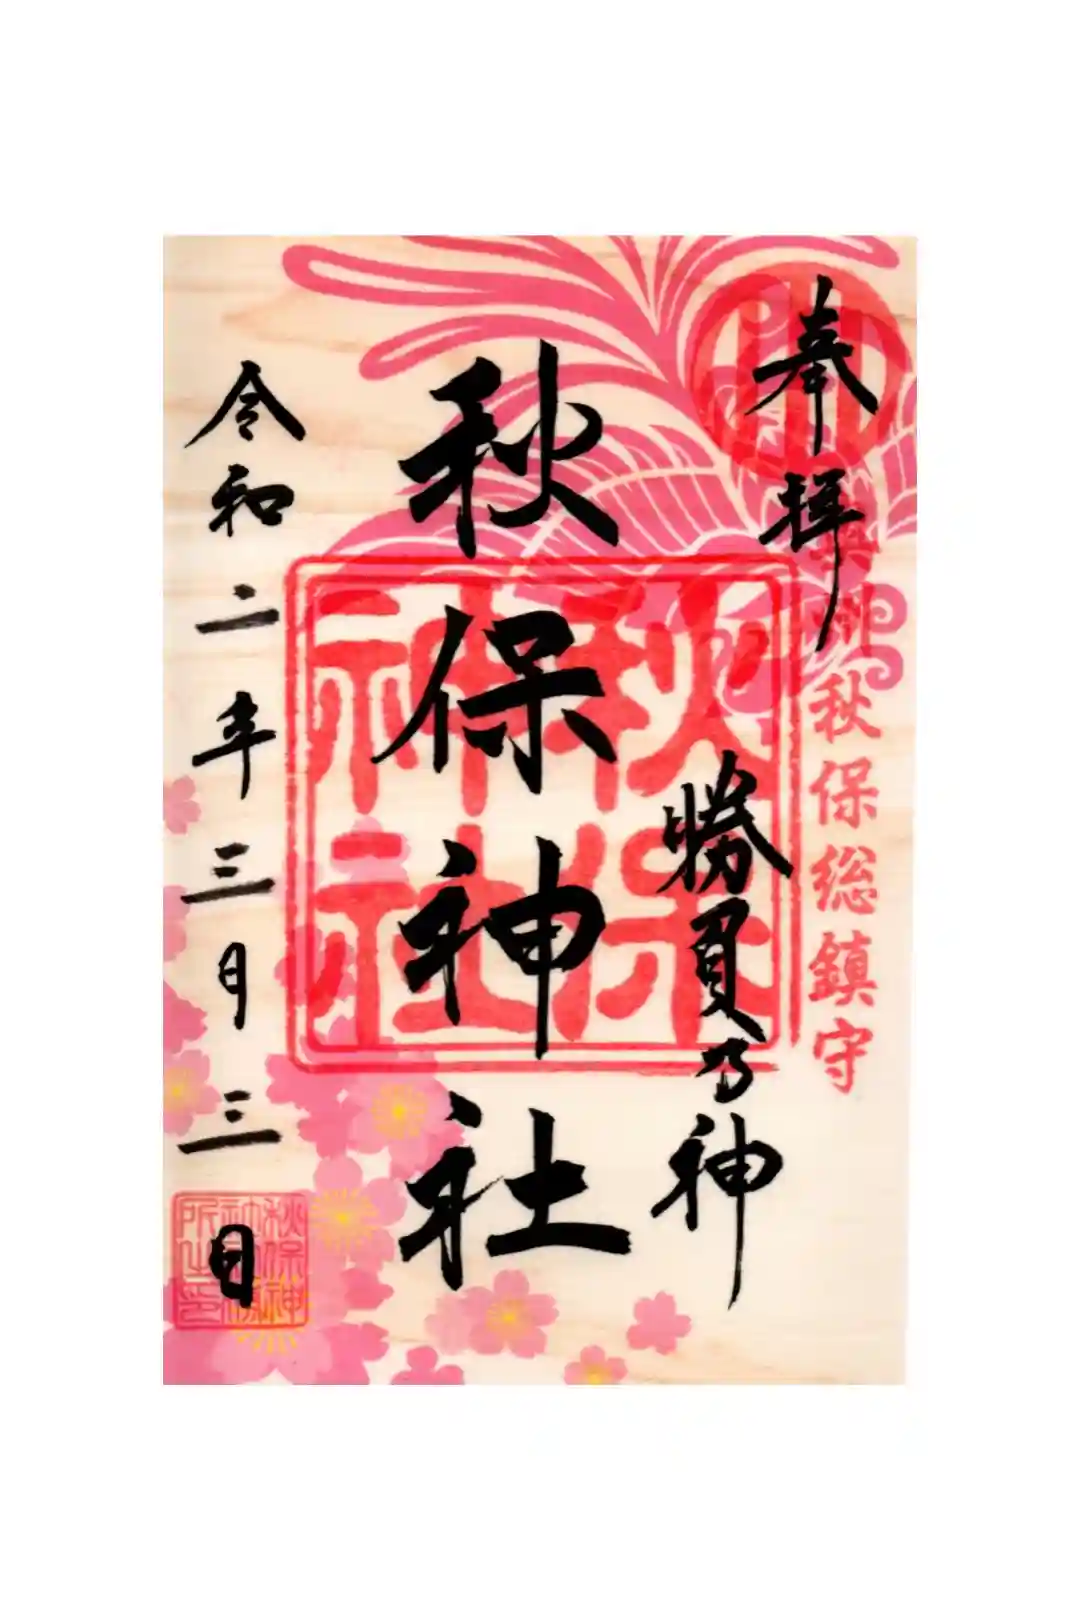 奉拝
奥州秋保総鎮守
勝負乃神
秋保神社
秋保神社
令和二年三月三日